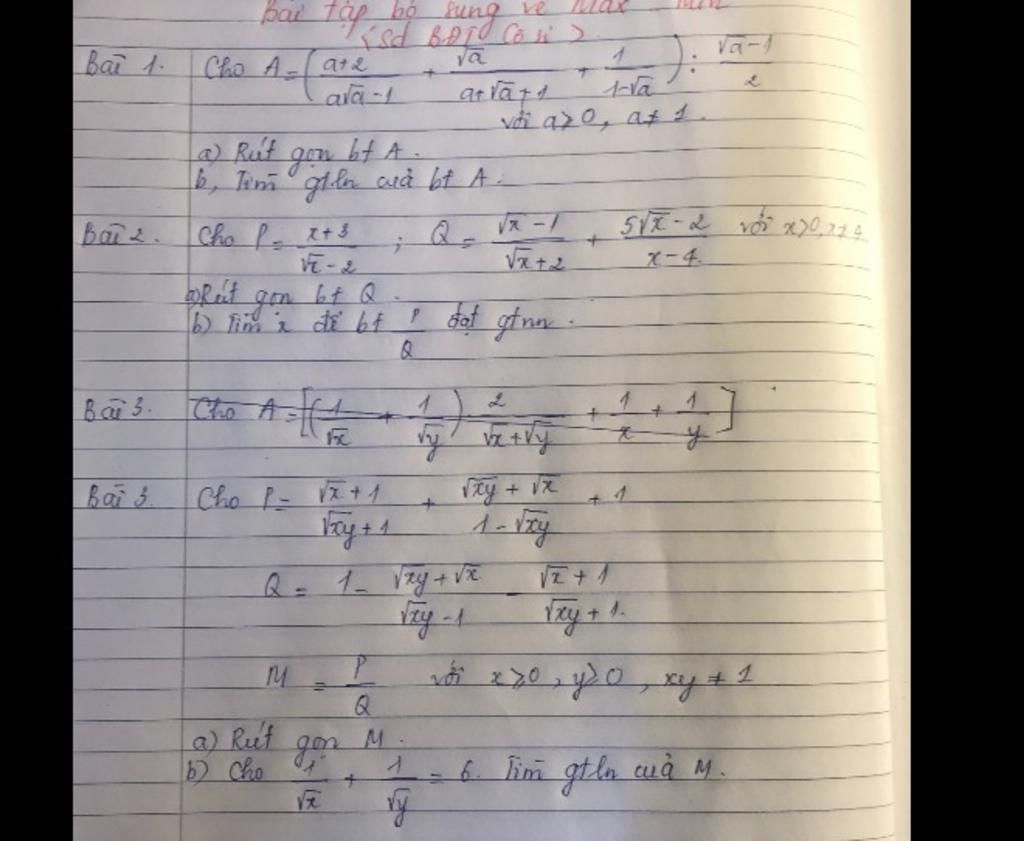 Bài tập bổ sung về Max Min
(Sd BĐT Cô si)
Bài 1. Cho A = (a+2/a√a-1 + √a/a+√a+1 + 1/1-√a) : √a-1/2
với a≥0, a≠1.
a) Rút gọn bt A.
b, Tìm gtln của bt A.
Bài 2. Cho P = x+3/√x-2 ; Q = √x-1/√x+2 + 5√x-2/x-4 với x>0, x≠4
a) Rút gọn bt Q.
b) Tìm x để bt P/Q đạt gtnn.
Bài 3. Cho A = [(1/√x + 1/√y) 2/√x+√y + 1/x + 1/y]
Bài 3. Cho P = √x+1/√xy+1 + √xy+√x/1-√xy + 1
Q = 1 - √xy+√x/√xy-1 - √x+1/√xy+1.
M = P/Q với x≥0, y≥0, xy≠1
a) Rút gọn M.
b) Cho 1/√x + 1/√y = 6. Tìm gtln của M.